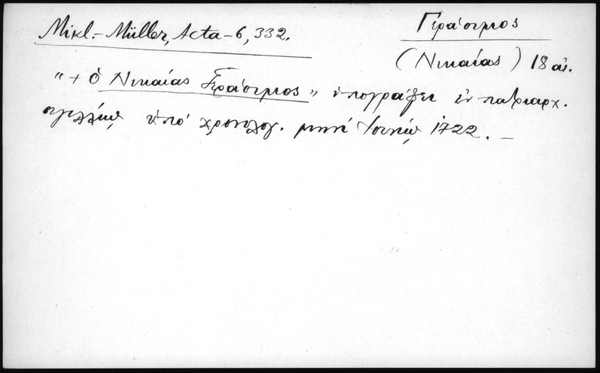 Mikl.-Müller, Acta-6, 332.
Γεράσιμος
(Νικαίας) 18 αἰ.
"+ ὁ Νικαίας Γεράσιμος" ὑπογράφει ἐν πατριαρχ.
σιγιλλίῳ ὑπὸ χρονολογ. μηνὶ Ἰουνίῳ 1722. –